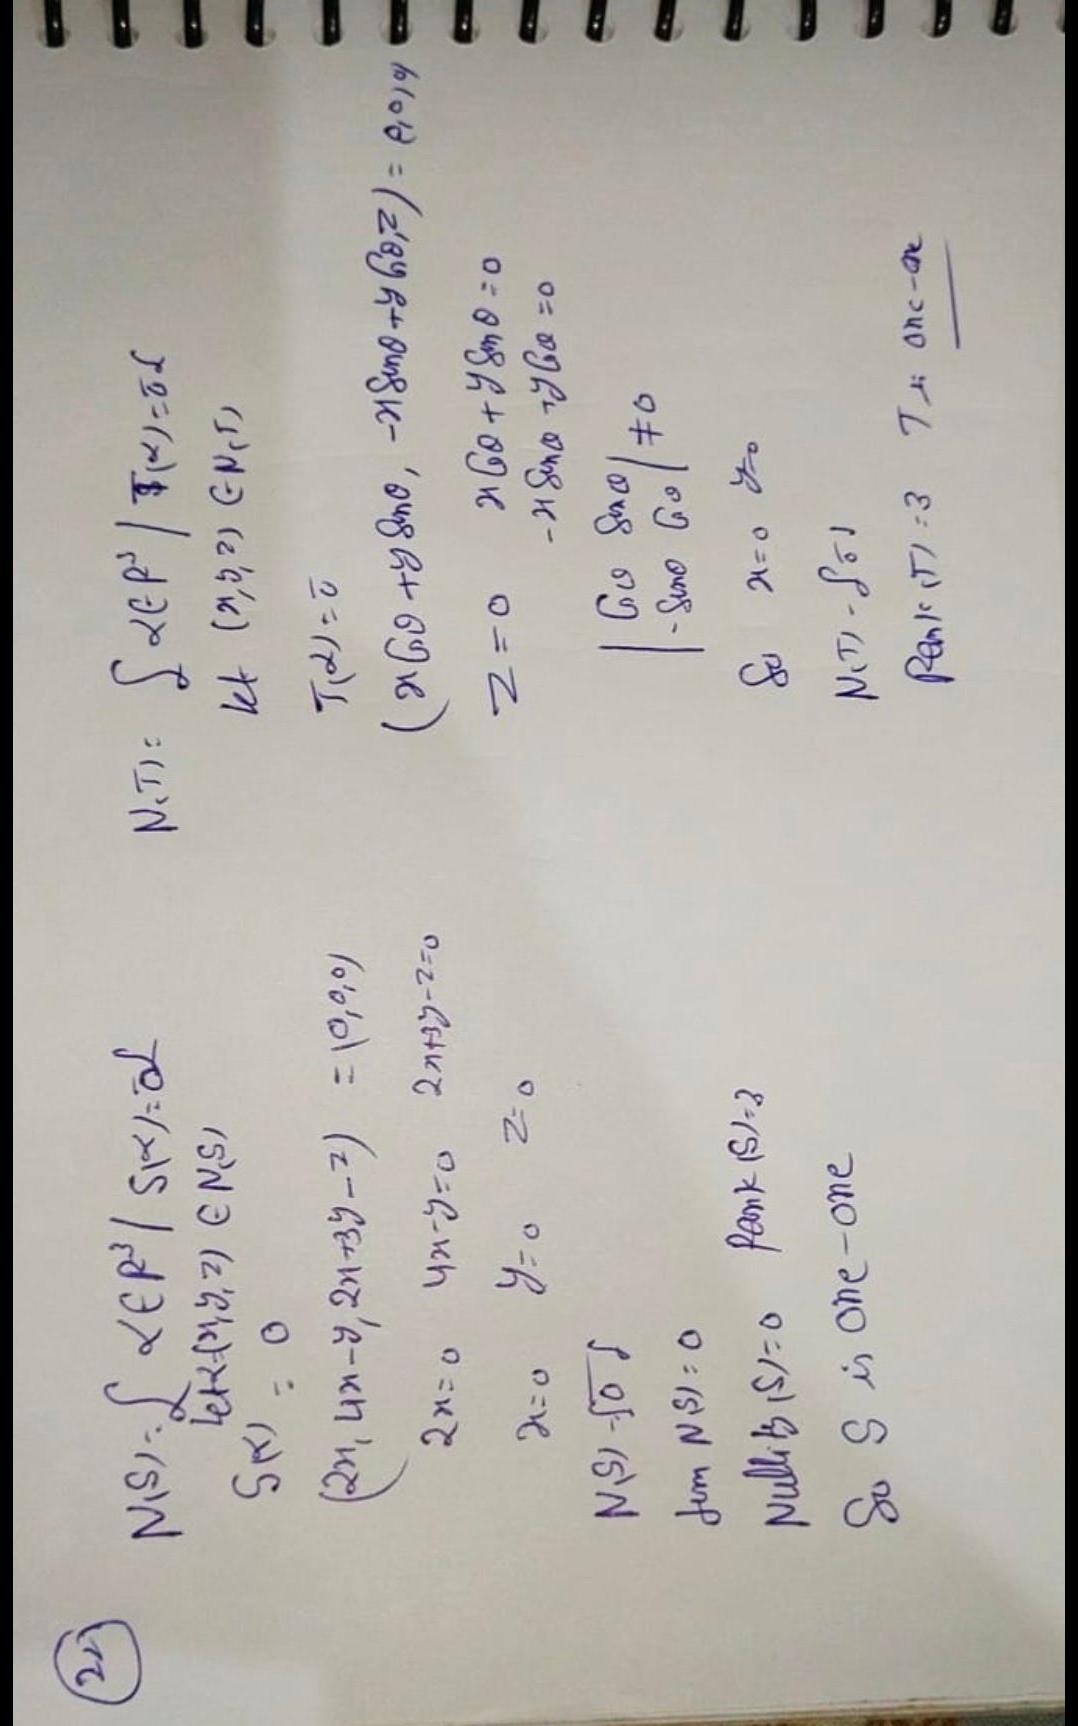 22)
N(S) = { α ∈ R³ / S(α) = 0̄ }
let α = (x, y, z) ∈ N(S)
S(α) = 0
(2x, 4x-y, 2x+3y-z) = (0,0,0)
2x=0 4x-y=0 2x+3y-z=0
x=0 y=0 z=0
N(S) = {0̄}
dim N(S) = 0
Nullity (S) = 0 Rank (S) = 3
So S is one-one
N(T) = { α ∈ R³ / T(α) = 0̄ }
let (x, y, z) ∈ N(T)
T(α) = 0̄
(x Cosθ + y Sinθ, -x Sinθ + y Cosθ, z) = (0,0,0)
z = 0 x Cosθ + y Sinθ = 0
-x Sinθ + y Cosθ = 0
| Cosθ Sinθ |
| -Sinθ Cosθ | ≠ 0
So x=0 y=0
N(T) = {0̄}
Rank (T) = 3 T is one-one